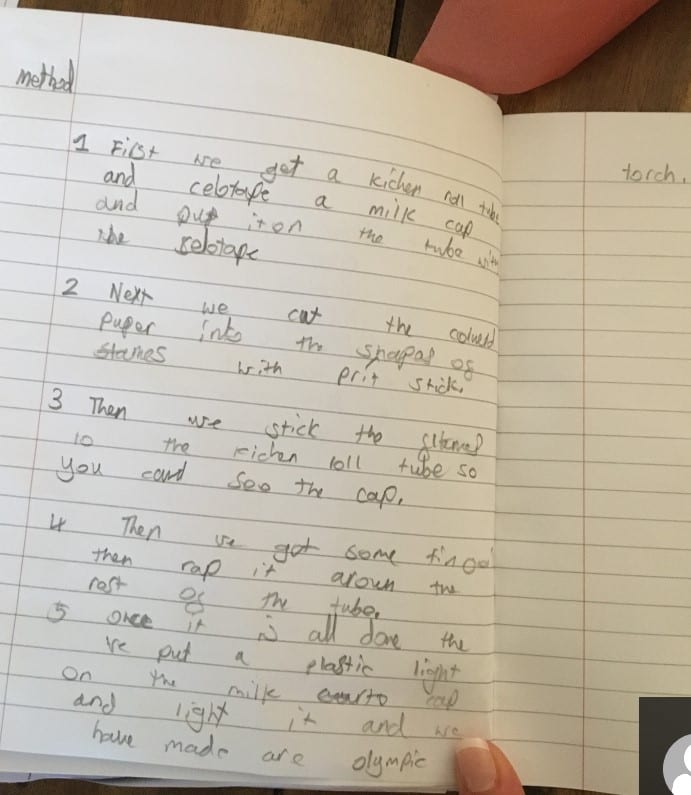 method
1 First we get a kichen roll tube
and celotape a milk cap
and put it on the tube with
the selotape
2 Next we cut the
paper into the shapas of
with prit stick.
3 Then we stick the
to the kichen roll tube so
you cand see the cap.
4 Then we got some
then rap it aroun the
rest of the tube.
5 once it is all done the
we put a plastic light
on the milk cap
and light it and we
have made are olympic
torch.